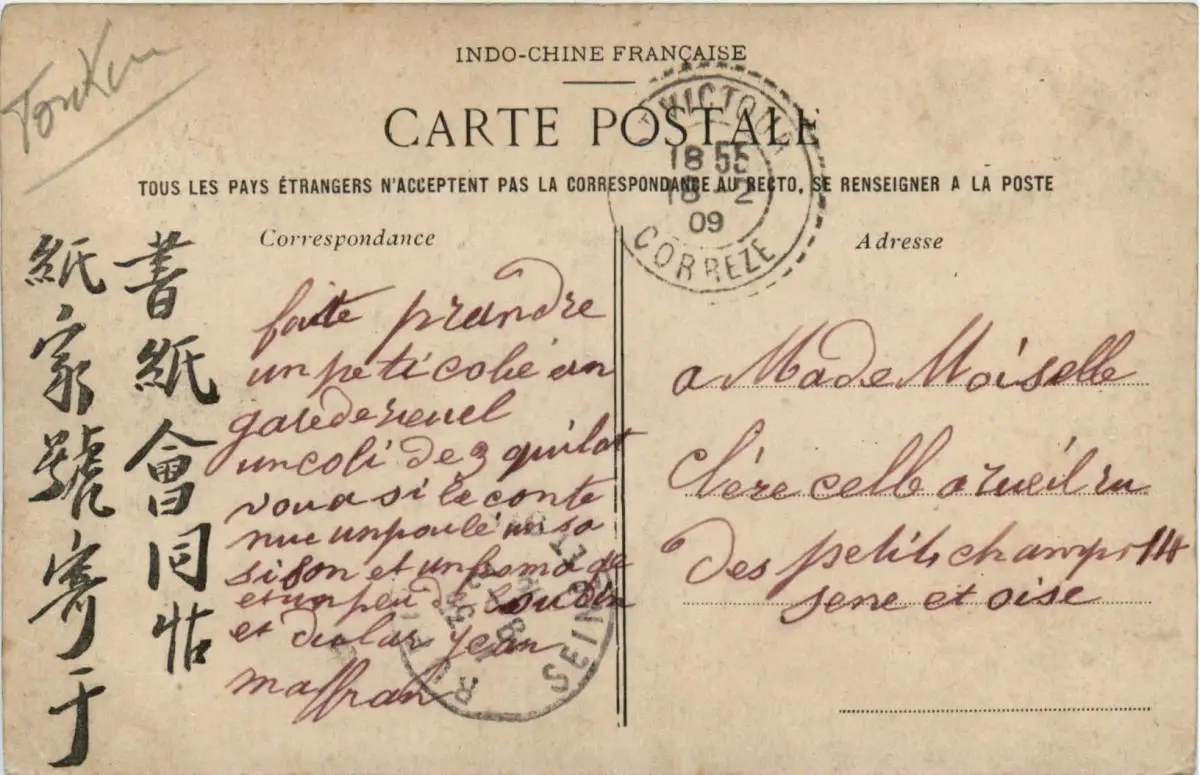 Tonkin
INDO-CHINE FRANÇAISE
CARTE POSTALE
TOUS LES PAYS ÉTRANGERS N'ACCEPTENT PAS LA CORRESPONDANCE AU RECTO, SE RENSEIGNER A LA POSTE
ST VICTOUR
18 55
18 - 2
09
CORREZE
Correspondance
Adresse
書紙會同帖
紙家號寄于
faite prandre
un peti colié an
gare de rueuel
un coli de 3 quilot
voua si le conte
nue un poulé un so
sison et un pome de
et un peu de boudin
et du lar jean
maffran
SEINE ET
RUEIL
a Mademoiselle
Clère celle a rueil ru
des petits champs 14
sene et oise